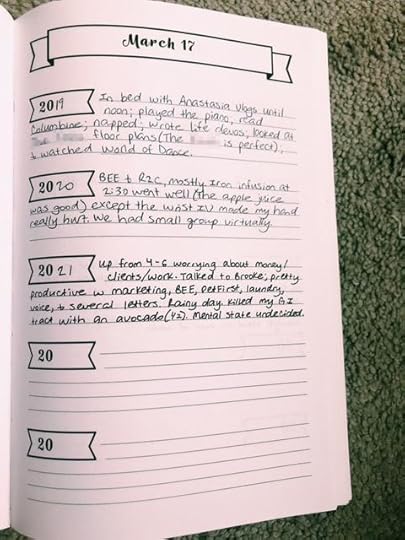 March 17
2019 In bed with Anastasia vlogs until
noon; played the piano, read
Columbine; napped; wrote life devos, looked at
floor plans (The is perfect);
& watched World of Dance.
2020 BEE & R2C, mostly Iron infusion at
2:30 went well (the apple juice
was good) except the wrist IV made my hand
really hurt. We had small group virtually.
2021 Up from 4-6 worrying about money/
clients/work. Talked to Brooke; pretty
productive w marketing, BEE, petFirst, laundry,
voice, & several letters. Rainy day killed my GI
tract with an avocado (42). Mental state undecided.
20
20